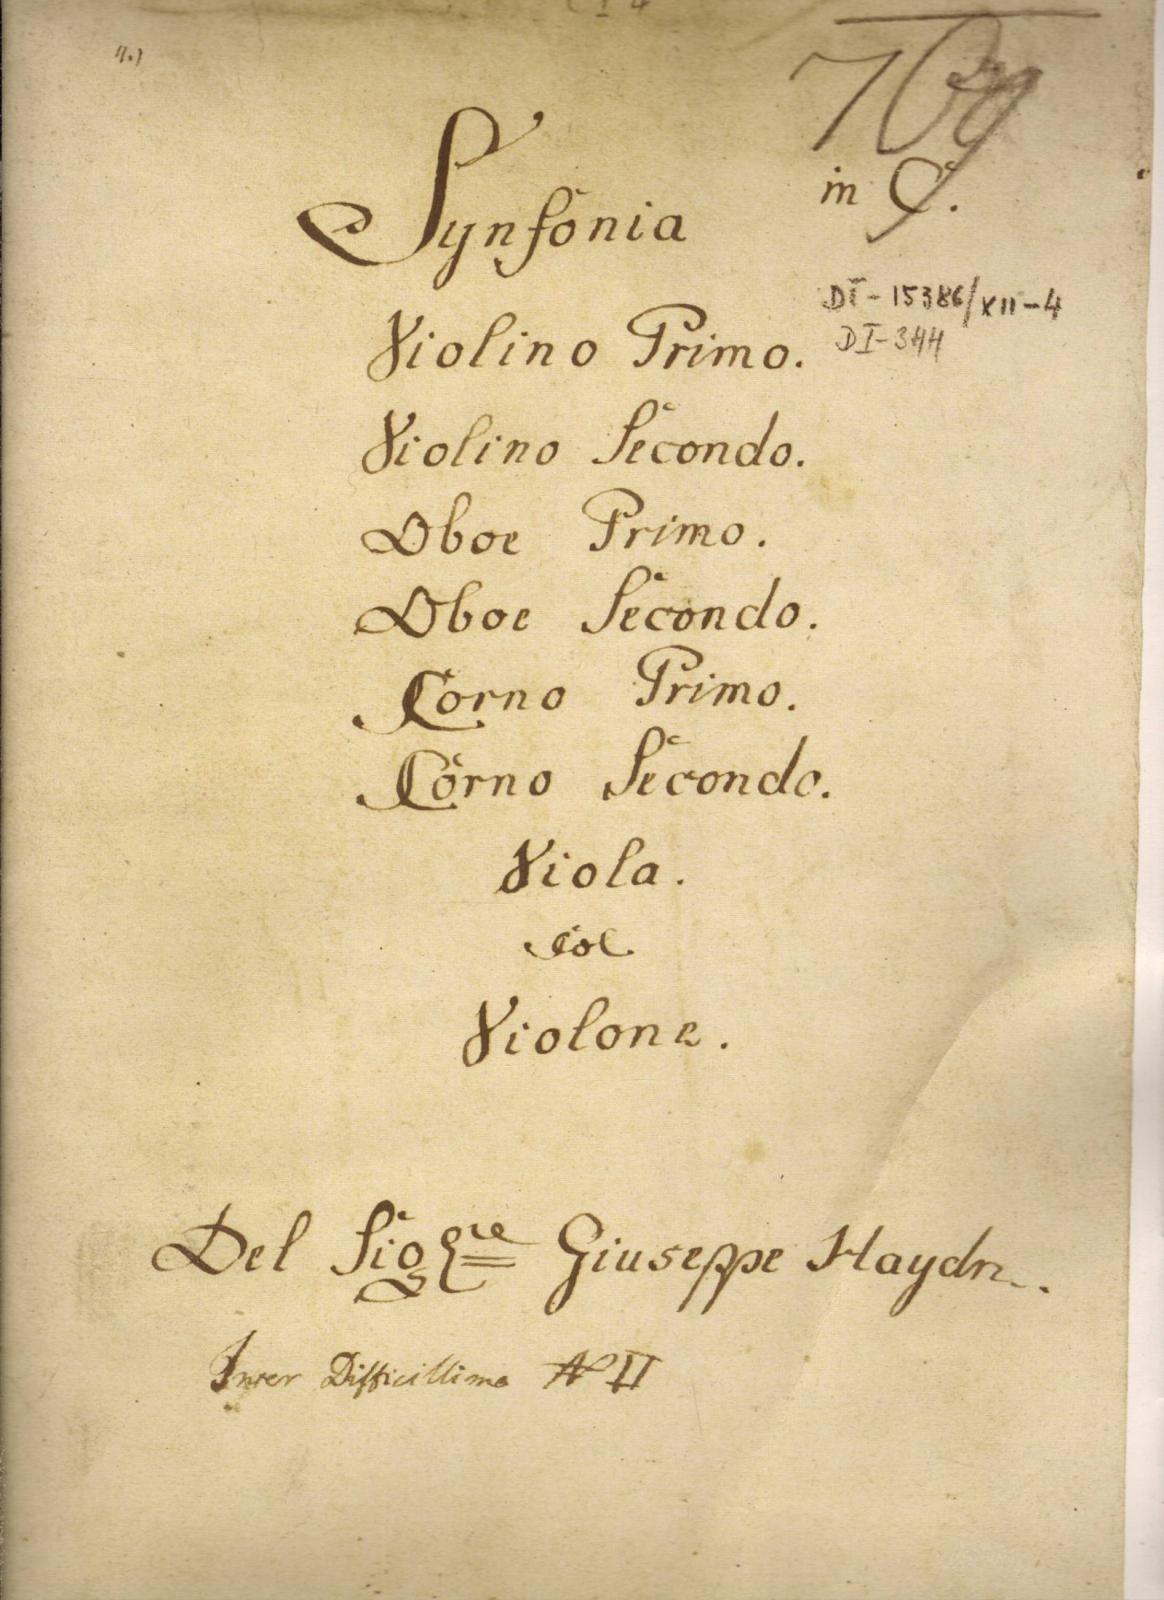 Synfonia
in C.
DI-15386/XII-4
DI-344
Violino Primo.
Violino Secondo.
Oboe Primo.
Oboe Secondo.
Corno Primo.
Corno Secondo.
Viola.
Col
Violone.
Del Sigre Giuseppe Haydn.
Inter Difficillima No II